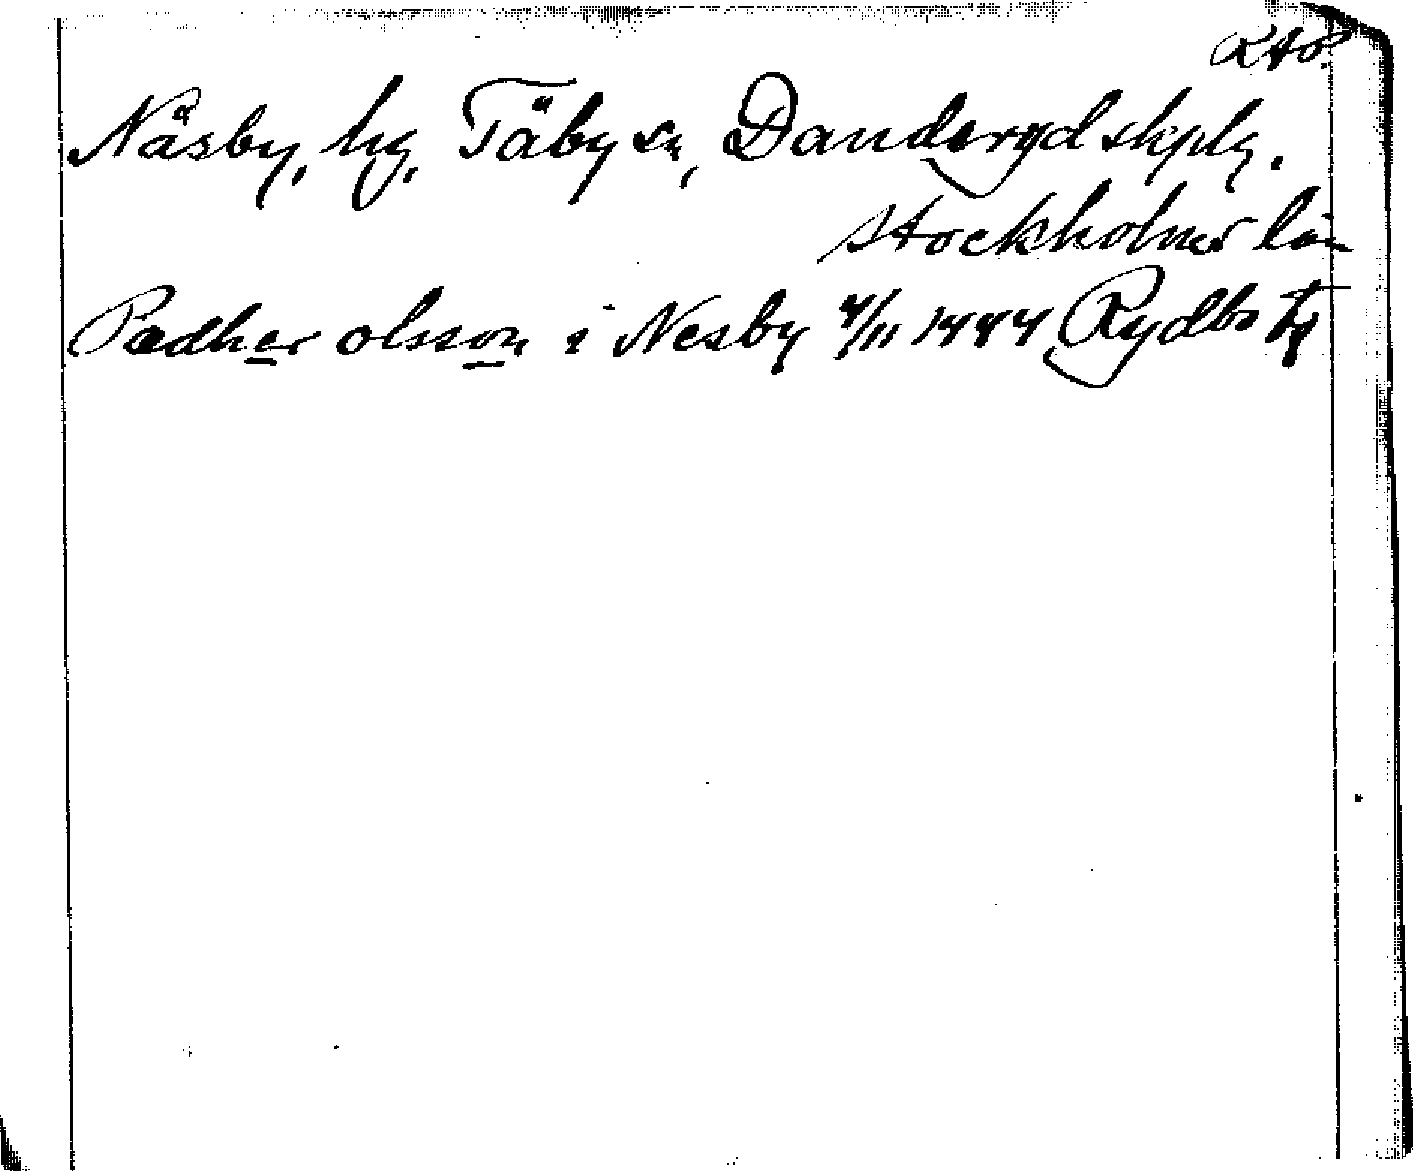 Näsby, by, Täby sn, Danderyd skplg.
Stockholms län
Pædher olsson i Nesby 4/11 1484 Rydbo